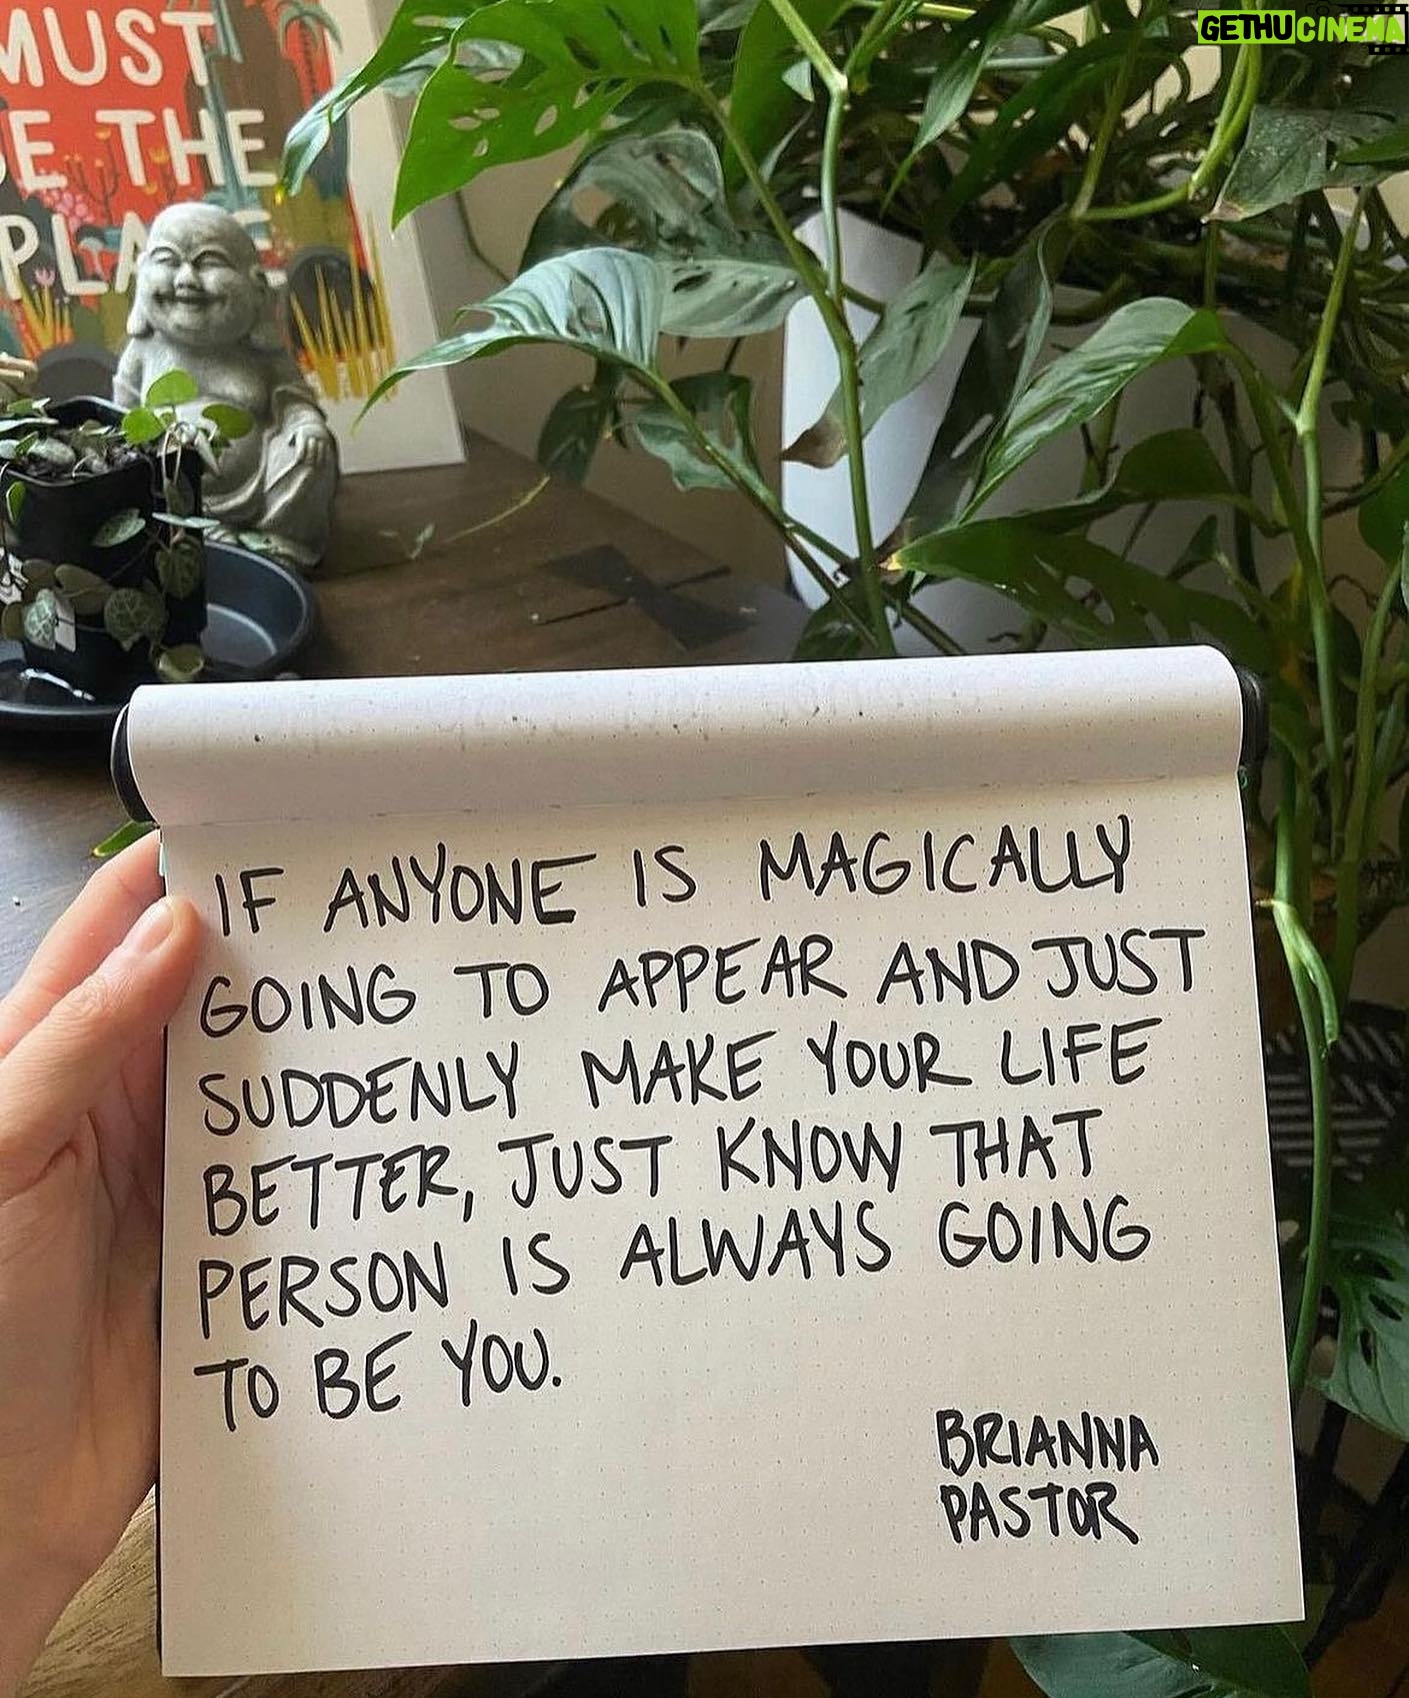 GETHUCINEMA
MUST
E THE
PLA
IF ANYONE IS MAGICALLY
GOING TO APPEAR AND JUST
SUDDENLY MAKE YOUR LIFE
BETTER, JUST KNOW THAT
PERSON IS ALWAYS GOING
TO BE YOU.
BRIANNA
PASTOR